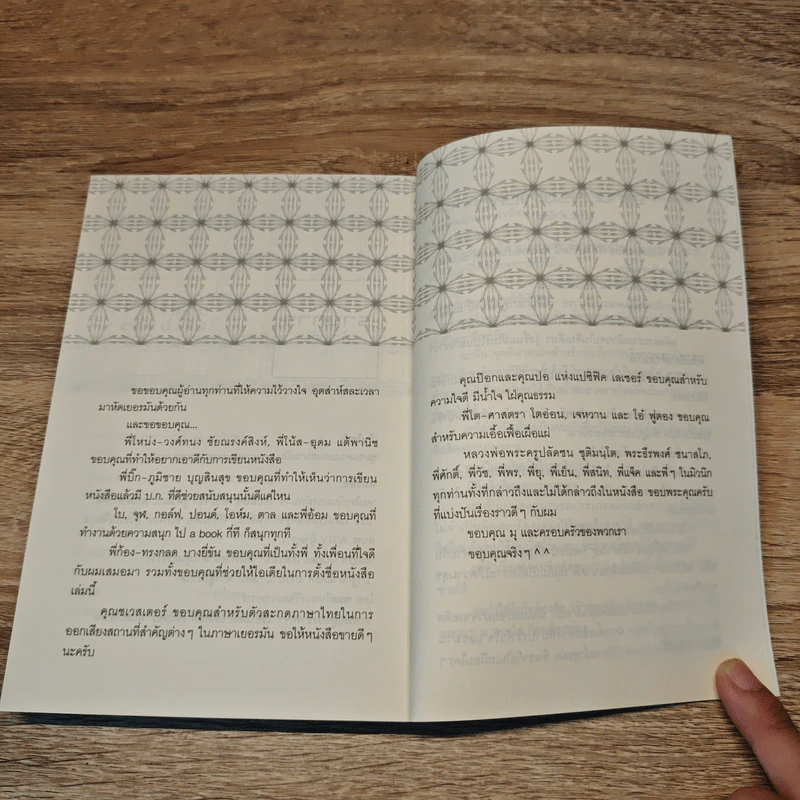 ขอขอบคุณผู้อ่านทุกท่านที่ให้ความไว้วางใจ อุตส่าห์สละเวลา
มาหัดเยอรมันด้วยกัน
และขอขอบคุณ...
พี่โหน่ง-วงศ์ทนง ชัยณรงค์สิงห์, พี่โน้ส-อุดม แต้พานิช
ขอบคุณที่ทำให้อยากเอาดีกับการเขียนหนังสือ
พี่บิ๊ก-ภูมิชาย บุญสินสุข ขอบคุณที่ทำให้เห็นว่าการเขียน
หนังสือแล้วมี บ.ก. ที่ดีช่วยสนับสนุนนั้นดีแค่ไหน
โบ, จุฬ, กอล์ฟ, ปอนด์, โอห์ม, ตาล และพี่อ้อม ขอบคุณที่
ทำงานด้วยความสนุก ไป a book กี่ที ก็สนุกทุกที
พี่ก้อง-ทรงกลด บางยี่ขัน ขอบคุณที่เป็นทั้งพี่ ทั้งเพื่อนที่ใจดี
กับผมเสมอมา รวมทั้งขอบคุณที่ช่วยให้ไอเดียในการตั้งชื่อหนังสือ
เล่มนี้
คุณซเวสเตอร์ ขอบคุณสำหรับตัวสะกดภาษาไทยในการ
ออกเสียงสถานที่สำคัญต่างๆ ในภาษาเยอรมัน ขอให้หนังสือขายดีๆ
นะครับ
คุณป๊อกและคุณปอ แห่งแปซิฟิค เลเซอร์ ขอบคุณสำหรับ
ความใจดี มีน้ำใจ ใฝ่คุณธรรม
พี่โต-ศาสตรา โตอ่อน, เจหวาน และ โอ๋ ฟูตอง ขอบคุณ
สำหรับความเอื้อเฟื้อเผื่อแผ่
หลวงพ่อพระครูปลัดซน ชุติมนฺโต, พระธีรพงศ์ ธนาสโภ,
พี่ศักดิ์, พี่วัช, พี่พร, พี่ยุ, พี่เย็น, พี่สนิท, พี่แจ็ค และพี่ๆ ในมิวนิก
ทุกท่านทั้งที่กล่าวถึงและไม่ได้กล่าวถึงในหนังสือ ขอบพระคุณครับ
ที่แบ่งปันเรื่องราวดีๆ กับผม
ขอบคุณ มุ และครอบครัวของพวกเรา
ขอบคุณจริงๆ ^ ^